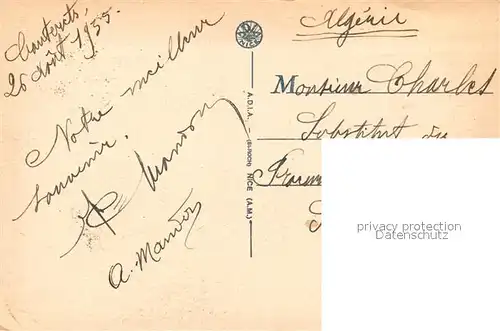 Cauterets,
26 Août 1955.
Notre meilleur
souvenir.
Mandon
A. Mandon
A.D.I.A. NICE (A.M.)
Algérie
Monsieur Charles
Substitut du
privacy protection
Datenschutz